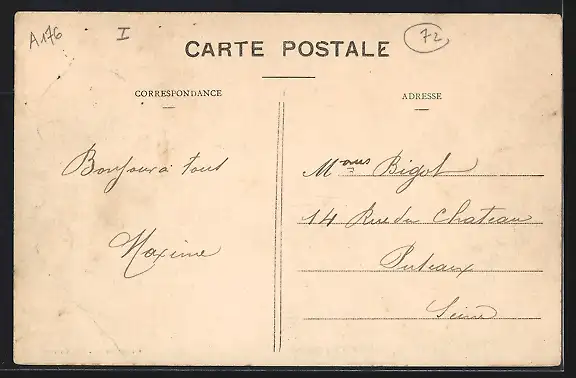 A176
I
72
CARTE POSTALE
CORRESPONDANCE
Bonjour à tous
Maxime
ADRESSE
Bigot
14 Rue du Chateau
Puteaux
Seine